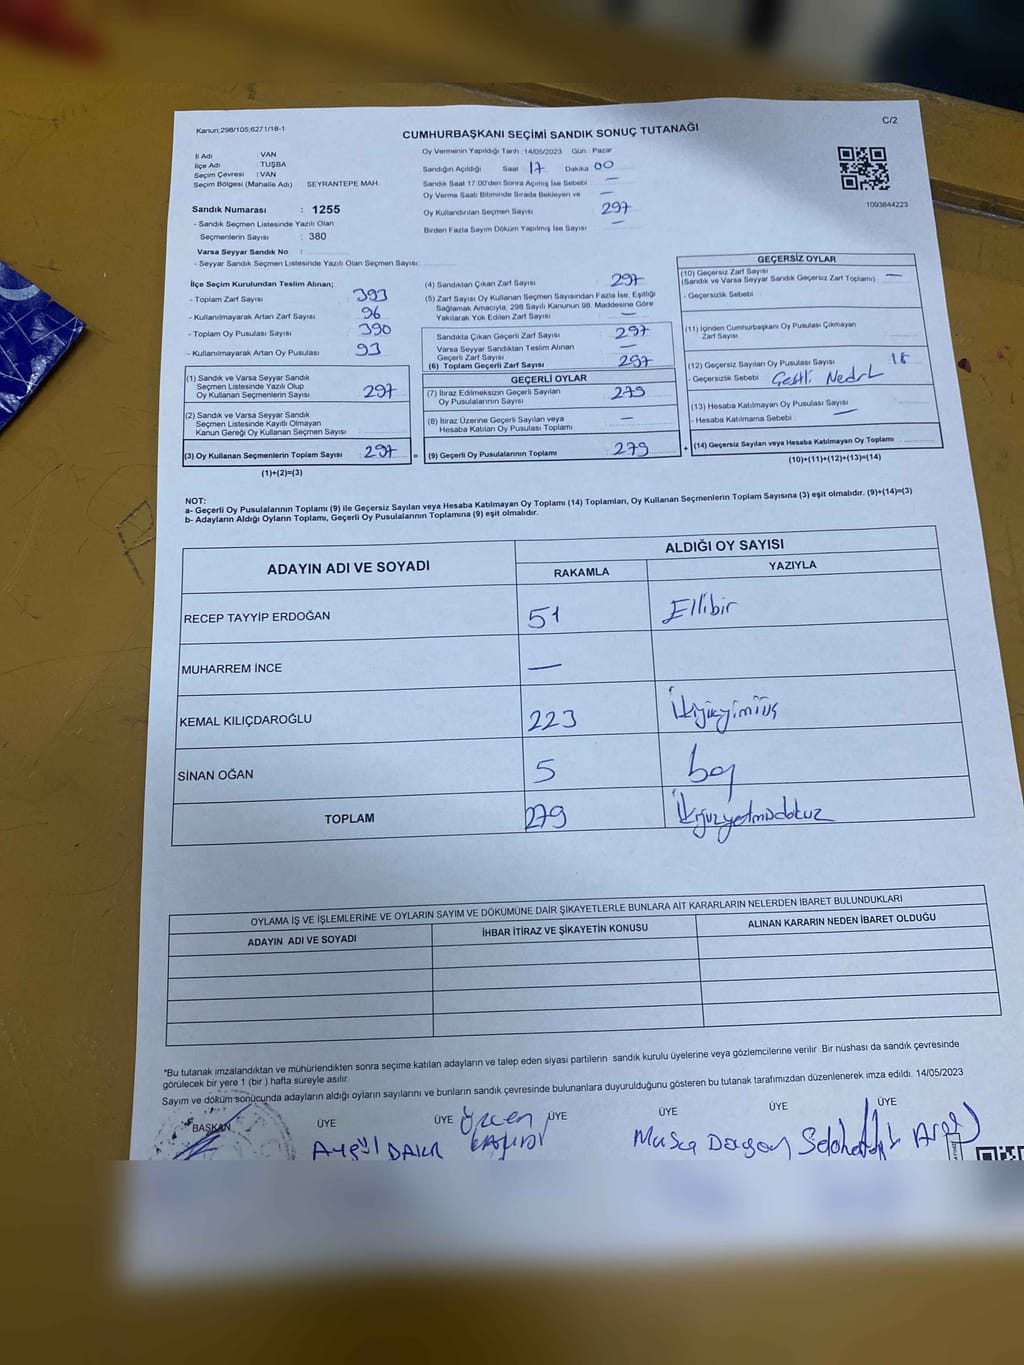 Kanun;298/105;6271/18-1
C/2
CUMHURBAŞKANI SEÇİMİ SANDIK SONUÇ TUTANAĞI
İl Adı : VAN
İlçe Adı : TUŞBA
Seçim Çevresi : VAN
Seçim Bölgesi (Mahalle Adı) SEYRANTEPE MAH
Oy Vermenin Yapıldığı Tarih : 14/05/2023 Gün : Pazar
Sandığın Açıldığı Saat 17 Dakika 00
Sandık Saat 17:00'den Sonra Açımış İse Sebebi —
Oy Verme Saati Bitiminde Sırada Bekleyen ve —
Oy Kullandırılan Seçmen Sayısı 297
Birden Fazla Sayım Döküm Yapılmış İse Sayısı —
1093844223
Sandık Numarası : 1255
- Sandık Seçmen Listesinde Yazılı Olan
Seçmenlerin Sayısı : 380
Varsa Seyyar Sandık No :
- Seyyar Sandık Seçmen Listesinde Yazılı Olan Seçmen Sayısı:
İlçe Seçim Kurulundan Teslim Alınan;
- Toplam Zarf Sayısı 393
- Kullanılmayarak Artan Zarf Sayısı 96
- Toplam Oy Pusulası Sayısı 390
- Kullanılmayarak Artan Oy Pusulası 93
(1) Sandık ve Varsa Seyyar Sandık
Seçmen Listesinde Yazılı Olup
Oy Kullanan Seçmenlerin Sayısı 297
(2) Sandık ve Varsa Seyyar Sandık
Seçmen Listesinde Kayıtlı Olmayan
Kanun Gereği Oy Kullanan Seçmen Sayısı
(3) Oy Kullanan Seçmenlerin Toplam Sayısı 297 =
(1)+(2)=(3)
(4) Sandıktan Çıkan Zarf Sayısı 297
(5) Zarf Sayısı Oy Kullanan Seçmen Sayısından Fazla İse, Eşitliği
Sağlamak Amacıyla, 298 Sayılı Kanunun 98. Maddesine Göre
Yakılarak Yok Edilen Zarf Sayısı —
Sandıkta Çıkan Geçerli Zarf Sayısı 297
Varsa Seyyar Sandıktan Teslim Alınan
Geçerli Zarf Sayısı —
(6) Toplam Geçerli Zarf Sayısı 297
GEÇERLİ OYLAR
(7) İtiraz Edilmeksizin Geçerli Sayılan
Oy Pusulalarının Sayısı 279
(8) İtiraz Üzerine Geçerli Sayılan veya
Hesaba Katılan Oy Pusulası Toplamı —
(9) Geçerli Oy Pusulalarının Toplamı 279 +
GEÇERSİZ OYLAR
(10) Geçersiz Zarf Sayısı —
(Sandık ve Varsa Seyyar Sandık Geçersiz Zarf Toplamı)
- Geçersizlik Sebebi
(11) İçinden Cumhurbaşkanı Oy Pusulası Çıkmayan
Zarf Sayısı
(12) Geçersiz Sayılan Oy Pusulası Sayısı 18
- Geçersizlik Sebebi
(13) Hesaba Katılmayan Oy Pusulası Sayısı —
- Hesaba Katılmama Sebebi :
(14) Geçersiz Sayılan veya Hesaba Katılmayan Oy Toplamı
(10)+(11)+(12)+(13)=(14)
NOT:
a- Geçerli Oy Pusulalarının Toplamı (9) ile Geçersiz Sayılan veya Hesaba Katılmayan Oy Toplamı (14) Toplamları, Oy Kullanan Seçmenlerin Toplam Sayısına (3) eşit olmalıdır. (9)+(14)=(3)
b- Adayların Aldığı Oyların Toplamı, Geçerli Oy Pusulalarının Toplamına (9) eşit olmalıdır.
ADAYIN ADI VE SOYADI
ALDIĞI OY SAYISI
RAKAMLA YAZIYLA
RECEP TAYYİP ERDOĞAN 51 Ellibir
MUHARREM İNCE —
KEMAL KILIÇDAROĞLU 223 İkiyüzyirmiüç
SİNAN OĞAN 5 beş
TOPLAM 279 İkiyüzyetmişdokuz
OYLAMA İŞ VE İŞLEMLERİNE VE OYLARIN SAYIM VE DÖKÜMÜNE DAİR ŞİKAYETLERLE BUNLARA AİT KARARLARIN NELERDEN İBARET BULUNDUKLARI
ADAYIN ADI VE SOYADI İHBAR İTİRAZ VE ŞİKAYETİN KONUSU ALINAN KARARIN NEDEN İBARET OLDUĞU
"Bu tutanak imzalandıktan ve mühürlendikten sonra seçime katılan adayların ve talep eden siyasi partilerin sandık kurulu üyelerine veya gözlemcilerine verilir .Bir nüshası da sandık çevresinde
görülecek bir yere 1 (bir ) hafta süreyle asılır.
Sayım ve döküm sonucunda adayların aldığı oyların sayılarını ve bunların sandık çevresinde bulunanlara duyurulduğunu gösteren bu tutanak tarafımızdan düzenlenerek imza edildi. 14/05/2023
BAŞKAN ÜYE ÜYE ÜYE ÜYE ÜYE ÜYE